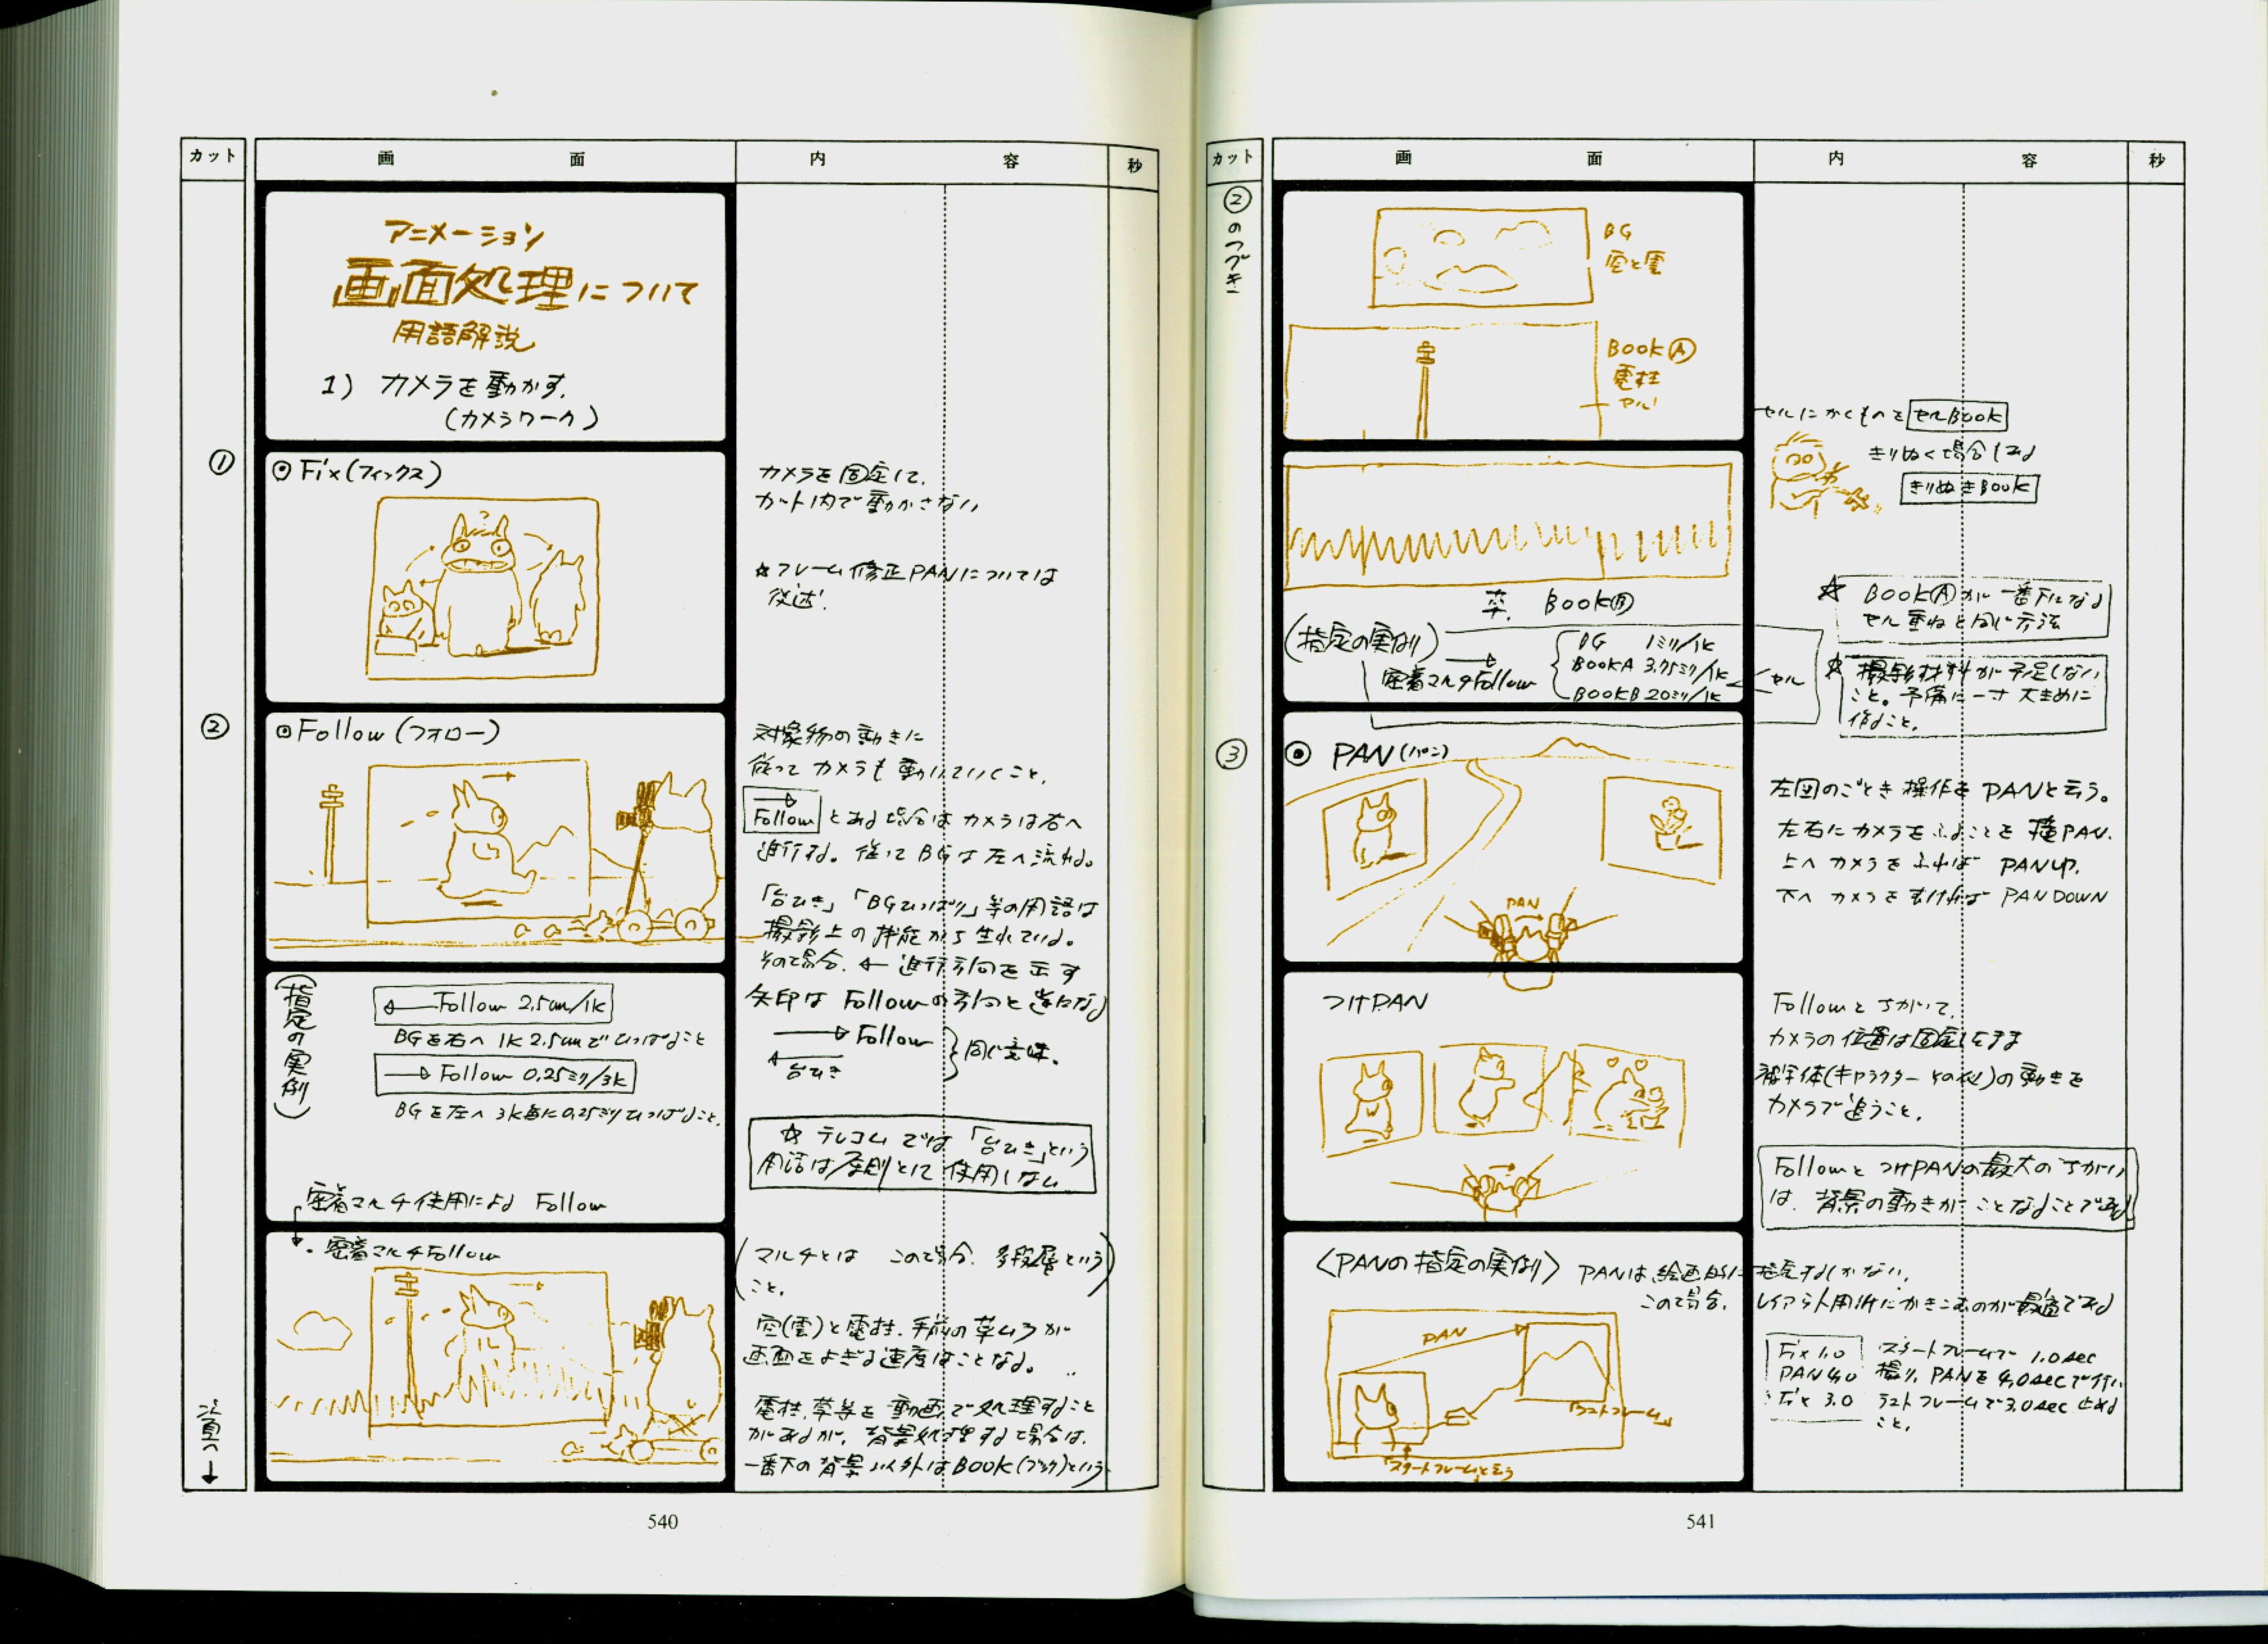 カット
画面
内容
秒
アニメーション
画面処理について
用語解説
1) カメラを動かす.
(カメラワーク)
①
◎ Fix(フィックス)
カメラを固定して.
カット内で動かさない
☆フレーム修正PANについては
後述.
②
◎Follow(フォロー)
対象物の動きに
従ってカメラも動いていくこと.
→
Follow とある場合はカメラは右へ
進行する。従ってBGは左へ流れる。
「台ひき」「BGひっぱり」等の用語は
撮影上の技能から生れている。
その場合.← 進行方向を示す
矢印は Followの方向と逆になる
→ Follow
← 台ひき
同じ意味.
☆ テレコムでは「台ひき」という
用語は原則として使用しない
(指定の実例)
← Follow 2.5cm/1k
BGを右へ 1k 2.5cmでひっぱること
→ Follow 0.25ミリ/3k
BGを左へ 3k毎に0.25ミリひっぱること.
密着マルチ使用による Follow
・密着マルチFollow
(マルチとは この場合.多段層という
こと.)
空(雲)と電柱.手前の草ムラが
画面をよぎる速度はことなる。
電柱.草等を動画で処理すること
があるが.背景処理する場合は.
一番下の背景以外はBOOK(ブック)という
次頁へ
↓
540
カット
画面
内容
秒
②のつづき
BG
空と雲
BOOKⒶ
電柱
セル
セルにかくものをセルBOOK
きりぬく場合は
きりぬきBOOK
草. BOOKⒷ
☆ BOOKⒶが一番下になる
セル重ねと同じ方法
(指定の実例)
→
密着マルチFollow
BG 1ミリ/1k
BOOKA 3.75ミリ/1k
BOOKB 20ミリ/1k
セル
☆ 撮影材料が不足しない
こと。予備に一寸大きめに
作ること.
③
◎ PAN(パン)
PAN
左図のごとき操作をPANと云う。
左右にカメラをふることを横PAN.
上へカメラをふれば PANUP.
下へカメラをむければ PANDOWN
つけPAN
Followとちがって.
カメラの位置は固定したまま
被写体(キャラクターその他)の動きを
カメラで追うこと.
FollowとつけPANの最大のちがい
は.背景の動きがことなることである
〈PANの指定の実例〉 PANは.絵画的に指定するしかない.
この場合.レイアウト用紙にかきこむのが最適である
PAN
「ラストフレーム」
「スタートフレーム」と云う
Fix 1.0
PAN 4.0
Fix 3.0
スタートフレームで 1.0sec
撮り.PANを4.0secで行い
ラストフレームで3.0sec 止める
こと.
541